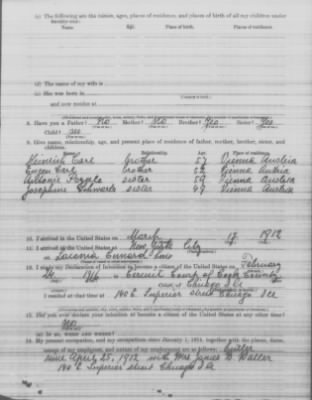 (c) The following are the names, ages, places of residence, and places of birth of all my children under
Name. Age. Place of birth. Place of residence.
(d) The name of my wife is
(e) She was born in
and now resides at
8. Have you a Father? No Mother? No Brother? Yes Sister? Yes
Child? No
9. Give name, relationship, age, and present place of residence of father, mother, brother, sister, and
children.
Name. Relationship. Age. Place of residence.
Heinrich Earl brother 57 Vienna Austria
Eugen Earl brother 52 Vienna Austria
sister 59 Vienna Austria
Josephine Schwartz sister 49 Vienna Austria
10. I arrived in the United States on March 17 1912
11. I arrived in the United States at New York City
on Laconia Cunard Line
12. I made my Declaration of Intention to become a citizen of the United States on February
1916 in Circuit Court of Cook County
Chicago Ill
I resided at that time at 140 E Superior street Chicago Ill
13. Did you ever declare your intention to become a citizen of the United States at any other time?
No
(a) If so, when and where?
14. My present occupation, and my occupations since January 1, 1914, together with the places, dates,
names of my employers, and nature of my employment are as follows: butler
since April 25, 1912 with Mrs James B. Waller
140 E Superior street Chicago Ill